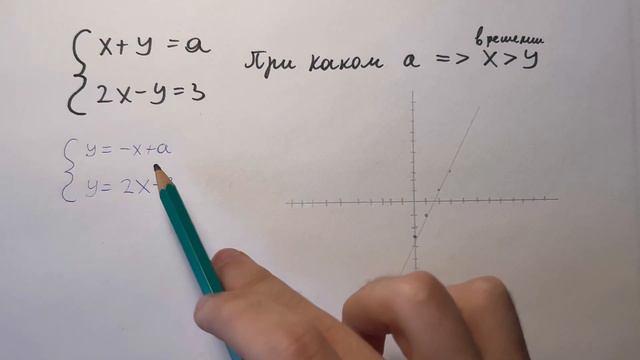 x+y=a
2x-y=3
При каком a => x>y
в решении
y=-x+a
y=2x-